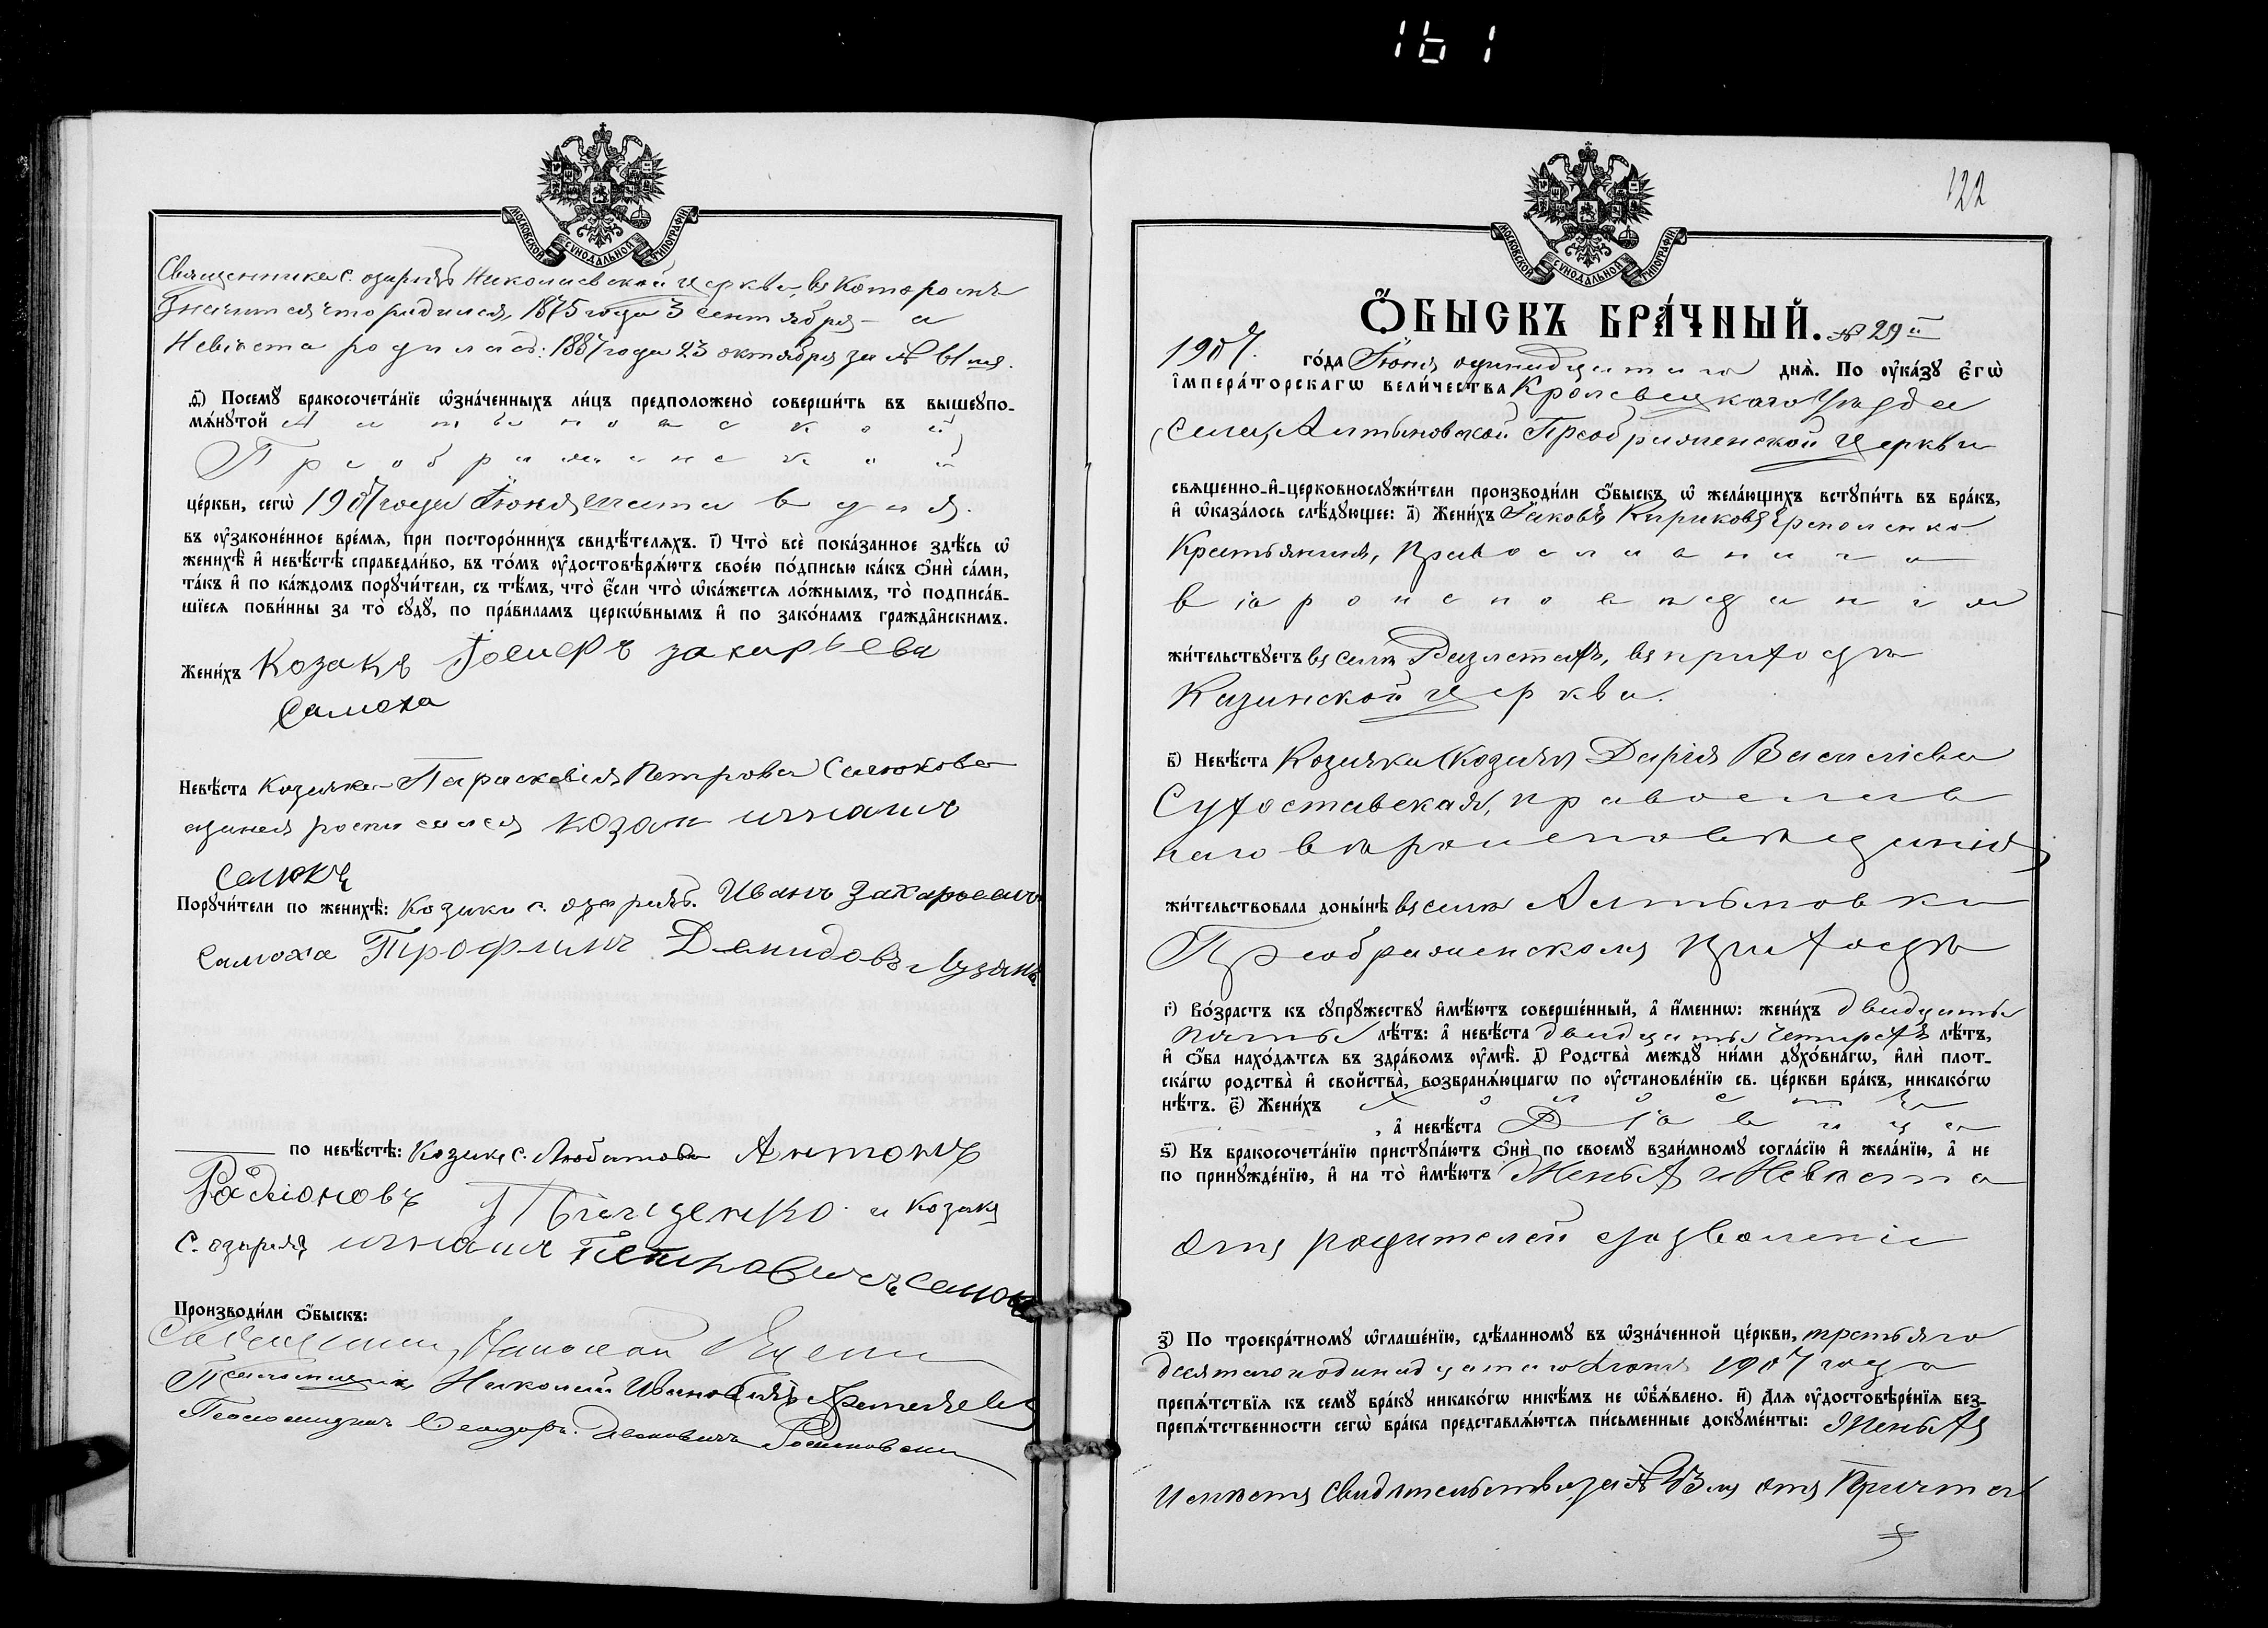 161
МОСКОВСКОЙ СѴНОДАЛЬНОЙ ТИПОГРАФІИ
Священника с. озаричъ Николаевской церкви, въ которомъ
значится что родился, 1875 года 3 сентября – а
Невѣста родилась: 1887 года 23 октября за №
д҃і) Посемꙋ̀ бракосочета́нїе ѡ҆зна́ченныхъ ли́цъ предположено̀ соверши́ть въ вышеꙋпо-
мѧ́нꙋтой Алтыновской
Преображенской
це́ркви, сегѡ̀ 1907 года Іюня дня.
въ ᲂу҆законе́нное вре́мѧ, при посторо́ннихъ свидѣ́телѧхъ. і҃) Что̀ всѐ пока́занное здѣ́сь ѡ҆
женихѣ̀ и҆ невѣ́стѣ справедли́во, въ то́мъ ᲂу҆достовѣрѧ́ютъ свое́ю по́дписью ка́къ ѻ҆нѝ са́ми,
та́къ и҆ по ка́ждомъ порꙋчи́тели, съ тѣ́мъ, что̀ є҆́сли что̀ ѡ҆ка́жетсѧ ло́жнымъ, то̀ подписа́в-
шїесѧ пови́нны за то̀ сꙋдꙋ̀, по пра́виламъ церкѡ́внымъ и҆ по зако́намъ гражда̑нскимъ.
Жени́хъ Козакъ Іосифъ захарьева
Самоха
Невѣ́ста Козачка Параскевія Петрова Салюкова
росписался козак игнатъ
Салюкъ
Порꙋчи́тели по женихѣ̀: Козаки с. озаричъ. Иванъ Захарьевичъ
Самоха Трофимъ Демидовъ Лузанъ
по невѣ́стѣ: Козакъ с. Любитова Антонъ
Радіоновъ и козакъ
с. озаричъ игнатъ Петровичъ Салюкъ
Производи́ли ѻ҆́быскъ:
Священникъ Николай
Псаломщикъ Николай Ивановичъ
Псаломщикъ Ѳеодоръ Ивановичъ
122
МОСКОВСКОЙ СѴНОДАЛЬНОЙ ТИПОГРАФІИ
Ѻ҆́БЫСКЪ БРА́ЧНЫЙ. № 29й
1907. го́да Іюня одинадцатаго днѧ̀. По ᲂу҆ка́зꙋ є҆гѡ̀
і҆мпера́торскагѡ вели́чества Кролевецкаго Уѣзда
Села, Алтыновской Преображенской церкви
свѧще́нно-и҆-церковнослꙋжи́тели производи́ли ѻ҆́быскъ ѡ҆ жела́ющихъ встꙋпи́ть въ бра́къ,
и҆ ѡ҆каза́лось слѣ́дꙋющее: а҃) Жени́хъ Іаковъ Кириковъ Ермоленко
Крестьянинъ, православнаго
вѣроисповѣданія
жи́тельствꙋетъ въ селѣ Разлетахъ, въ приходѣ
Казанской церкви.
в҃) Невѣ́ста Козачка Дарія Василіева
Сухоставская, православ
наго вѣроисповѣданія
жи́тельствовала доны́нѣ въ селѣ Алтыновки
Преображенскомъ приходѣ
г҃) Во́зрастъ къ сꙋпрꙋ́жествꙋ и҆мѣ́ютъ соверше́нный, а҆ и҆́меннѡ: жени́хъ двадцать
пять лѣ́тъ: а҆ невѣ́ста двадцать четырехъ лѣ́тъ,
и҆ ѻ҆́ба нахо́дѧтсѧ въ здра́вомъ ᲂу҆мѣ̀. д҃) Родства̀ междꙋ̀ ни́ми дꙋхо́внагѡ, и҆лѝ плот-
ска́гѡ родства̀ и҆ свойства̀, возбранѧ́ющагѡ по ᲂу҆становле́нїю св. це́ркви бра́къ, никако́гѡ
нѣ́тъ. є҃) Жени́хъ холостъ
, а҆ невѣ́ста Дѣвица
ѕ҃) Къ бракосочета́нїю пристꙋпа́ютъ ѻ҆нѝ по своемꙋ̀ взаи́мномꙋ согла́сїю и҆ жела́нїю, а҆ не
по принꙋжде́нїю, и҆ на то̀ и҆мѣ́ютъ Женихъ и Невѣста
отъ родителей дозволеніе
з҃) По троекра́тномꙋ ѡ҆глаше́нїю, сдѣ́ланномꙋ въ ѡ҆зна́ченной це́ркви, третьяго
десятаго и одинадцатаго Іюня 1907 года
препѧ́тствїѧ къ семꙋ̀ бра́кꙋ никако́гѡ никѣ́мъ не ѡ҆б̾ѧ́влено. и҃) Для ᲂу҆достовѣре́нїѧ без-
препѧ́тственности сегѡ̀ бра́ка представлѧ́ютсѧ пи́сьменные докꙋме́нты: Женихъ
отъ Причта